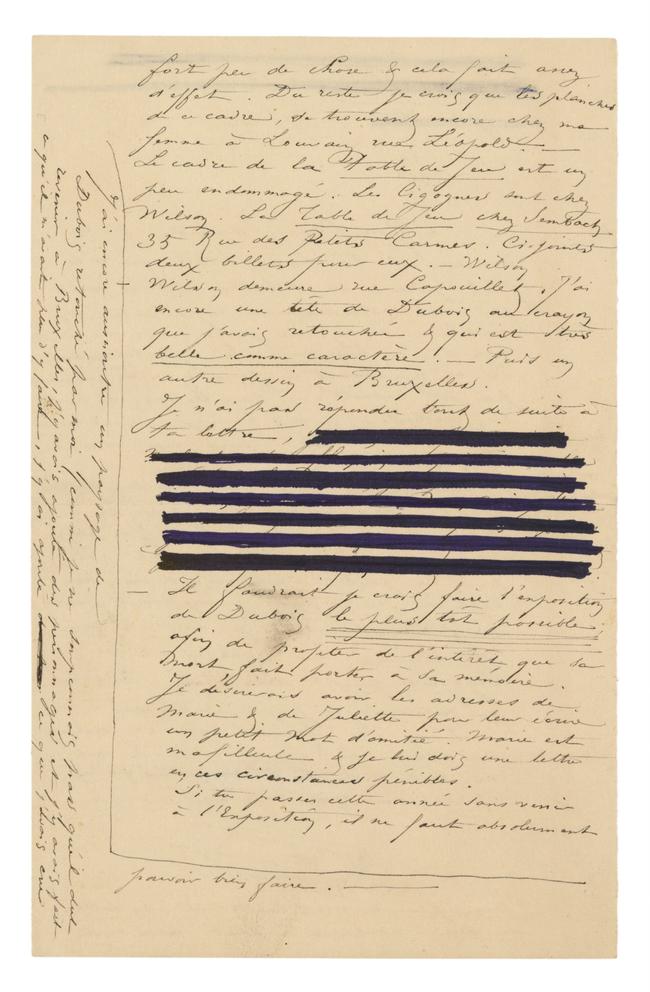 fort peu de chose & cela fait assez
d'effet. Du reste je crois que les planches
de ce cadre, se trouvent encore chez ma
femme à Louvain rue Léopold. —
Le cadre de la Table de Jeu est un
peu endommagé. Les Cigognes sont chez
Wilson. La Table de Jeu chez Sembach
35 Rue des Petits Carmes. Ci-joints
deux billets pour eux. — Wilson
Wilson demeure rue Capouillet. J'ai
encore une tête de Dubois au crayon
que j'avais retouchée & qui est très
belle comme caractère. — Puis un
autre dessin à Bruxelles.
Je n'ai pas répondu tout de suite à
ta lettre,
— Il faudrait je crois faire l'exposition
de Dubois le plus tôt possible,
afin de profiter de l'intérêt que sa
mort, fait porter à sa mémoire.
Je désirerais avoir les adresses de
Marie & de Juliette pour leur écrire
un petit mot d'amitié. Marie est
ma filleule & je lui dois une lettre
en ces circonstances pénibles.
Si tu passes cette année sans venir
à l'Exposition, il ne faut absolument
J'ai encore un paysage de
Dubois retouché par moi, comme je ne soupçonnais pas qu'il dut
revenir à Bruxelles, j'y avais ajouté des personnages et j'y avais fait
ce qu'il n'avait pas d'y faire, j'y ai ajouté ce que j'avais cru
pouvoir bien faire. —